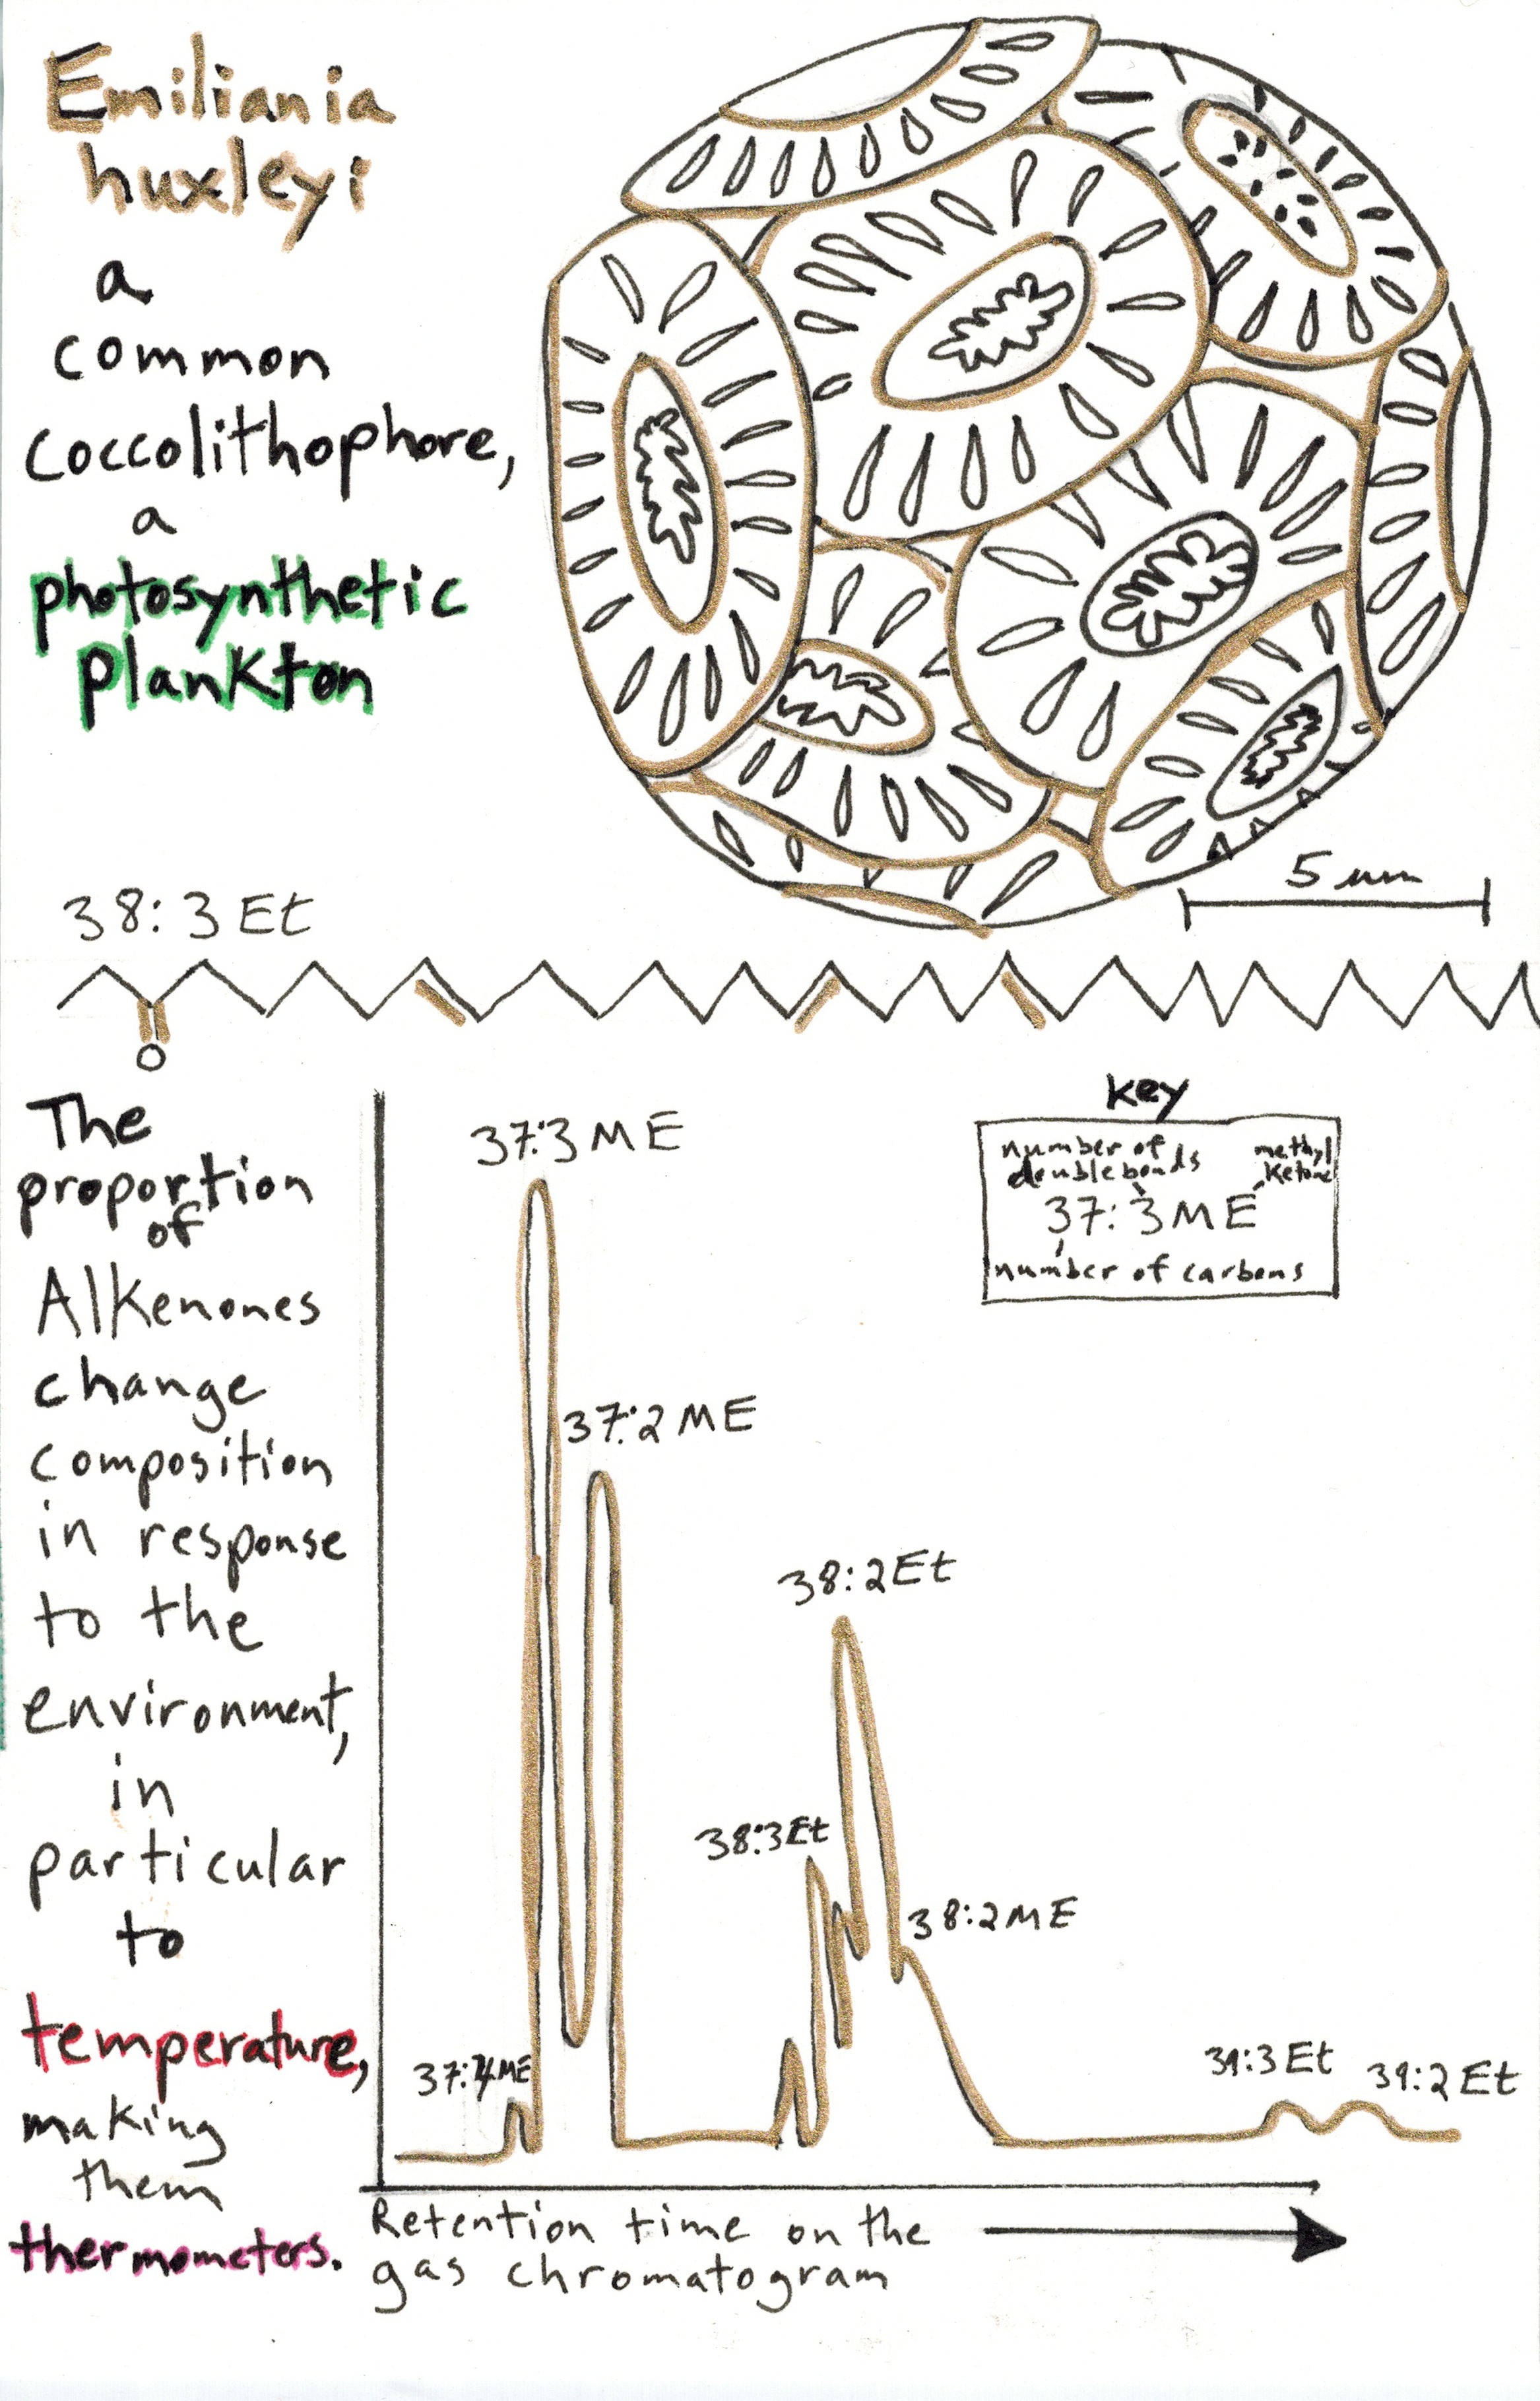 Emiliania
huxleyi
a
common
coccolithophore,
a
photosynthetic
plankton
5 um
38:3Et
O
The
proportion
of
Alkenones
change
composition
in response
to the
environment,
in
particular
to
temperature,
making
them
thermometers.
37:3ME
37:2ME
38:2Et
38:3Et
38:2ME
37:4ME
39:3Et
39:2Et
Key
number of
double bonds
methyl
Ketone
37:3ME
number of carbons
Retention time on the
gas chromatogram